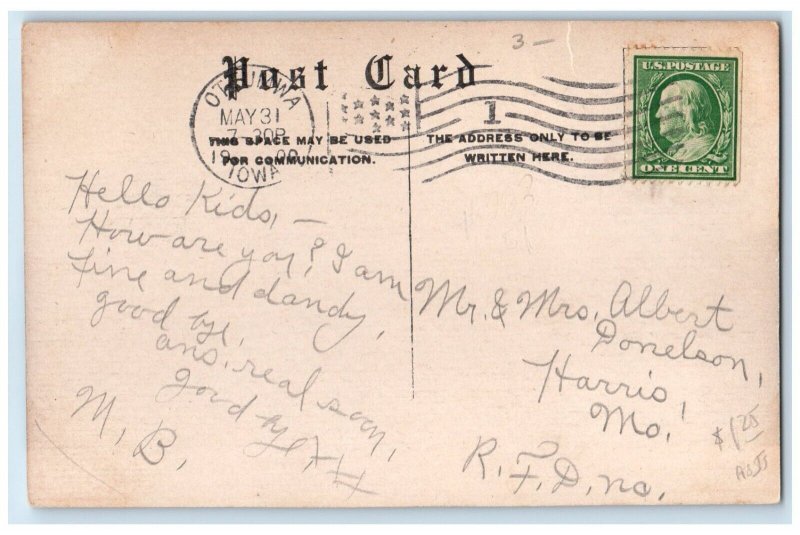 3-
Post Card
OTTUMWA
MAY 31
7-30P
IOWA
1
U.S. POSTAGE
ONE CENT
THIS SPACE MAY BE USED
FOR COMMUNICATION.
THE ADDRESS ONLY TO BE
WRITTEN HERE.
Hello Kids, -
How are you? I am
fine and dandy,
good bye,
ans. real soon,
Good bye
M. B.
Mr. & Mrs. Albert
Donelson,
Harris,
Mo.
R. F. D. no.
$1.25